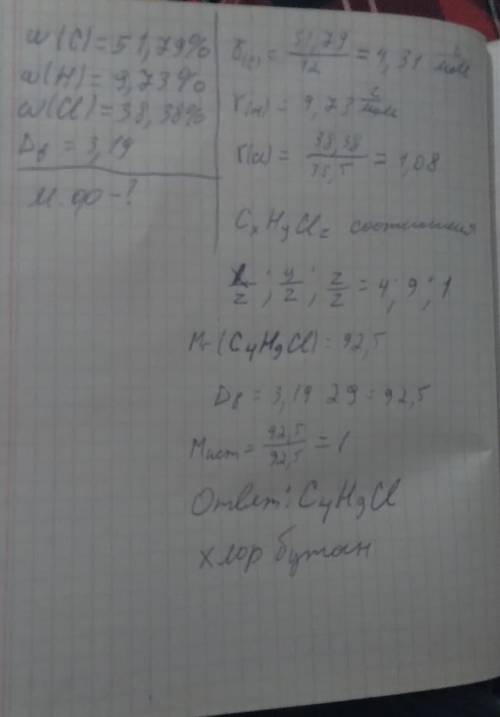 w(C)=51,79%
w(H)=9,73%
w(Cl)=38,38%
Dв = 3,19
М.ф-?
γ(c) = 51,79/12 = 4,31 г/моль
γ(н) = 9,73 г/моль
γ(cl) = 38,38/35,5 = 1,08
CxHyClz соотношения
x/z ; y/z ; z/z = 4; 9; 1
Mr (C4H9Cl) = 92,5
Dв = 3,19 29 = 92,5
Mист = 92,5/92,5 = 1
Ответ: C4H9Cl
хлор бутан